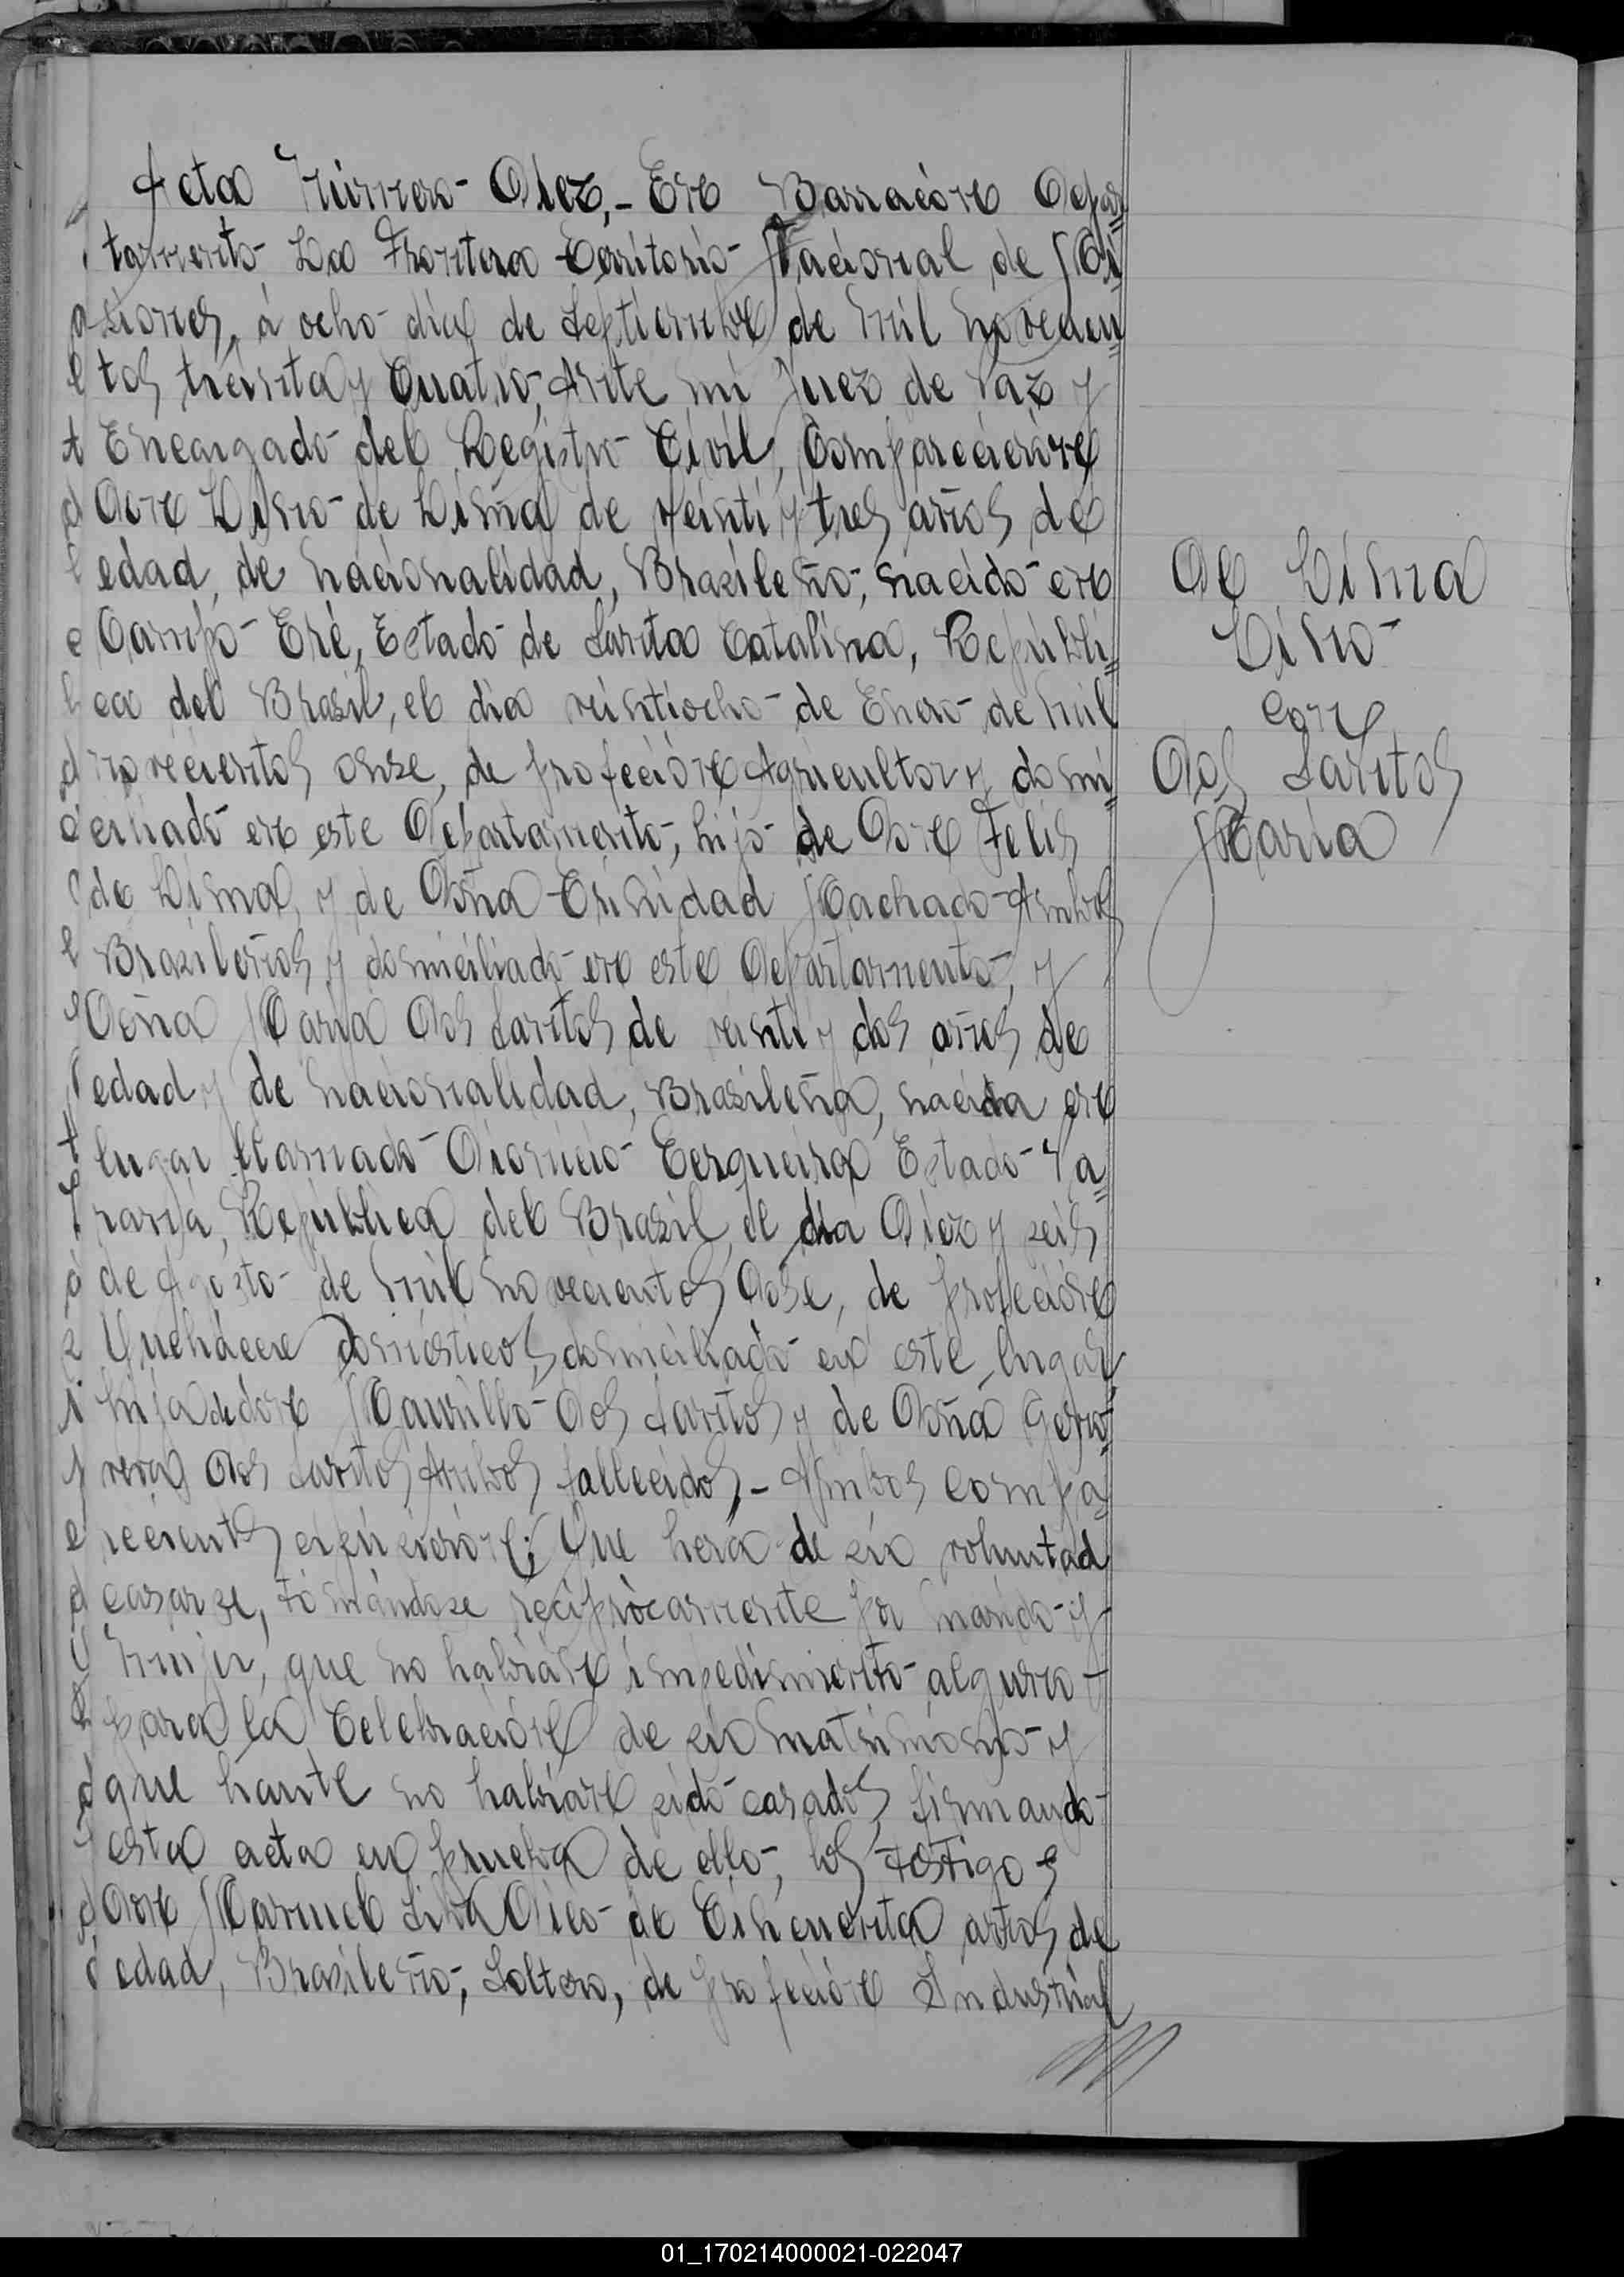 Acta Número Diez.- En Barracón Depar=
tamento La Frontera Territorio Nacional de Mi=
siones, á ocho dias de Septiembre de mil novecien=
tos treinta y cuatro, Ante mi Juez de Paz y
Encargado del Registro Civil, Comparecieron
Don Lino de Lima de veinti y tres años de
edad, de nacionalidad, Brazileño, nacido en
Campo Eré, Estado de Santa Catalina, Repúbli=
ca del Brasil, el dia veintiocho de Enero de mil
novecientos onse, de profeción Agricultor y domi=
ciliado en este Departamento, hijo de Don Felis
de Lima, y de Doña Trinidad Machado Ambos
Brazileños y domiciliado en este Departamento, y
Doña Maria Dos Santos de veinti y dos años de
edad y de nacionalidad, Brazileña, nacida en
lugar llamado Dionicio Cerqueira Estado Pa=
raná, República del Brazil, el dia Diez y seis
de Agosto de mil novecientos Dose, de profeción
Quehacere Domésticos, domiciliado en este lugar
hija de don Maurillo Dos Santos y de Doña Geno=
veva Dos Santos, Ambos fallecidos,- Ambos Compa
recientes espucieron; Que hera de su voluntad
casarze, tomándoze reciprócamente por marido y
mujer, que no habian impedimento alguno
para la Celebración de su matrimonio y
que hante no habian sido casados, firmando
esta acta en prueba de ello, los testigos
Don Manuel Silva Dico de Cincuenta años de
edad, Brasileño, Soltero, de profeción Industrial
De Lima
Lino
con
Dos Santos
Maria
01_170214000021-022047